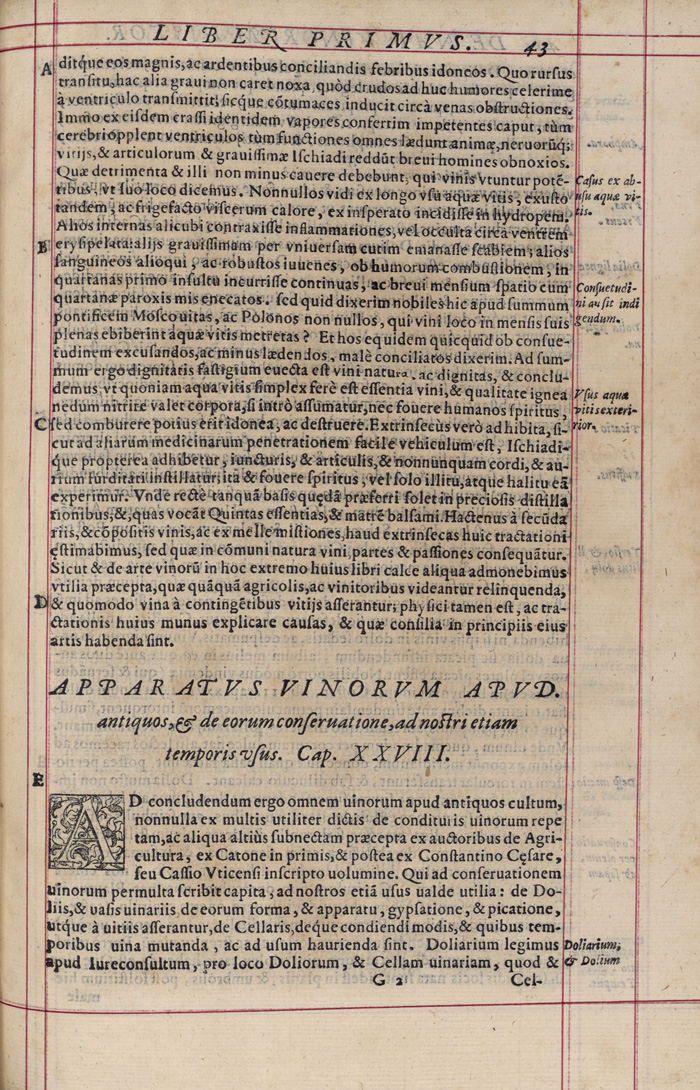 LIBER PRIMVS. 43
A ditque eos magnis, ac ardentibus conciliandis febribus idoneos. Quo rursus
transitu, hac alia graui non caret noxa, quòd crudos ad huc humores celerime
à ventriculo transmittit; sicque cōtumaces inducit circà venas obstructiones.
Immo ex eisdem crassi identidem vapores confertim impetentes caput, tùm
cerebri opplent ventriculos, tùm functiones omnes lædunt animæ, neruorūq;
vitijs, & articulorum & grauissimæ Ischiadi reddūt breui homines obnoxios.
Quæ detrimenta & illi non minus cauere debebunt, qui vinis vtuntur potē-
tibus, vt suo loco dicemus. Nonnullos vidi ex longo vsu aquæ vitis, exusto
Casus ex ab-
usu aquæ vi-
tis.
tandem, ac frigefacto viscerum calore, ex insperato incidisse in hydropem.
Alios internas alicubi contraxisse inflammationes, vel occulta circà ventrem
B erysipelata: alijs grauissimam per vniuersam cutim emanasse scabiem; alios
sanguineos alioqui, ac robustos iuuenes, ob humorum combustionem, in
quartanas primo insultu incurrisse continuas, ac breui mensium spatio eum
quartanæ paroxismis enecatos. sed quid dixerim nobiles hic apud summum
Consuetudi-
ni an sit indi
gendum.
pontificem Moscouitas, ac Polonos non nullos, qui vini loco in mensis suis
plenas ebiberint aquæ vitis metretas? Et hos equidem quicquid ob consue-
tudinem excusandos, ac minus lædendos, malè conciliatos dixerim. Ad sum-
mum ergo dignitatis fastigium euecta est vini natura. ac dignitas, & conclu-
demus, vt quoniam aqua vitis simplex ferè est essentia vini, & qualitate ignea
Vsus aquæ
vitis exteri-
rior.
nedum nitrire valet corpora, si intrò assumatur, nec fouere humanos spiritus,
C sed comburere potius erit idonea, ac destruere. Extrinsecùs verò ad hibita, si-
cut ad aliarum medicinarum penetrationem facile vehiculum est, Ischiadi-
que propterea adhibetur, iuncturis, & articulis, & nonnunquam cordi, & au-
rium surditati instillatur; ita & fouere spiritus, vel solo illitu, atque halitu eā
experimur. Vnde rectè tanquā basis quędā præferri solet in preciosis distilla
tionibus, &, quas vocāt Quintas essentias, & matrē balsami. Hactenus à secūda
riis, & cōpositis vinis, ac ex melle mistiones, haud extrinsecas huic tractationi
ęstimabimus, sed quæ in cōmuni natura vini, partes & passiones consequātur.
Sicut & de arte vinorū in hoc extremo huius libri calce aliqua admonebimus
vtilia præcepta, quæ quāquā agricolis, ac vinitoribus videantur relinquenda,
D & quomodo vina à contingētibus vitijs asserantur; physici tamen est, ac tra-
ctationis huius munus explicare causas, & quæ consilia in principiis eius
artis habenda sint.
APPARATVS VINORVM APVD.
antiquos, & de eorum conseruatione, ad nostri etiam
temporis vsus. Cap. XXVIII.
E
AD concludendum ergo omnem uinorum apud antiquos cultum,
nonnulla ex multis utiliter dictis de condituris uinorum repe
tam, ac aliqua altiùs subnectam præcepta ex auctoribus de Agri-
cultura, ex Catone in primis, & postea ex Constantino Cęsare,
seu Cassio Vticensi inscripto uolumine. Qui ad conseruationem
uinorum permulta scribit capita, ad nostros etiā usus ualde utilia: de Do-
liis, & uasis uinariis de eorum forma, & apparatu, gypsatione, & picatione,
utque à uitiis asserantur, de Cellaris, deque condiendi modis, & quibus tem-
poribus uina mutanda, ac ad usum haurienda sint. Doliarium legimus
Doliarium,
& Dolium
apud Iureconsultum, pro loco Doliorum, & Cellam uinariam, quod &
G 2 Cel-